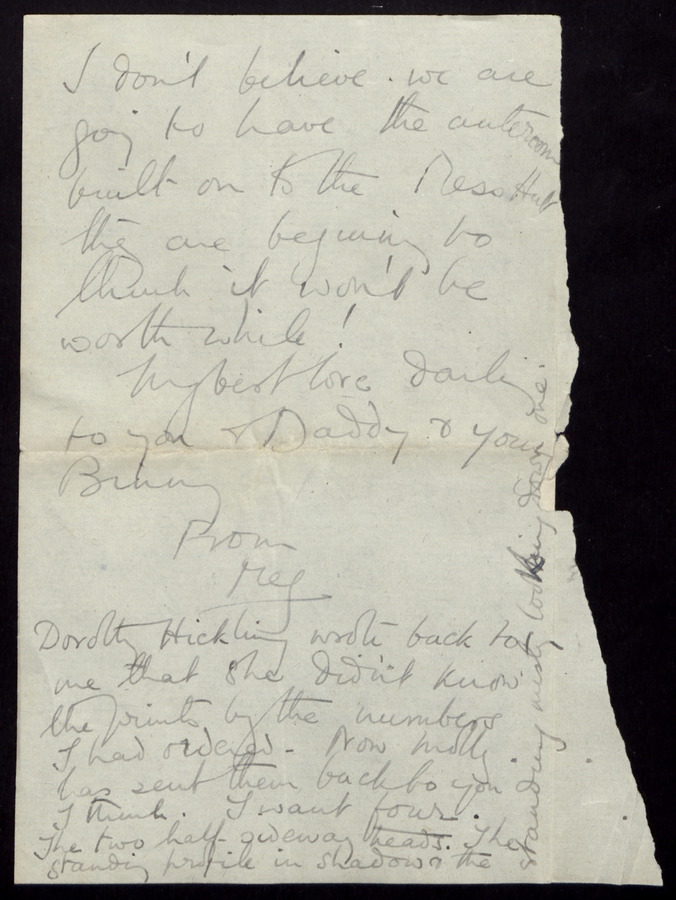 I don't believe we are
going to have the anteroom
built on to the Mess Hut
they are beginning to
think it won't be
worth while!
My best love darling
to you & Daddy & your
From
Meg
Dorothy Hickling wrote back to
me that she didn't know
the prints by the numbers
I had ordered - Now Molly
has sent them back to you
I think. I want four.
The two half-sideway heads. The
standing profile in shadow & the
standing misty looking down one.